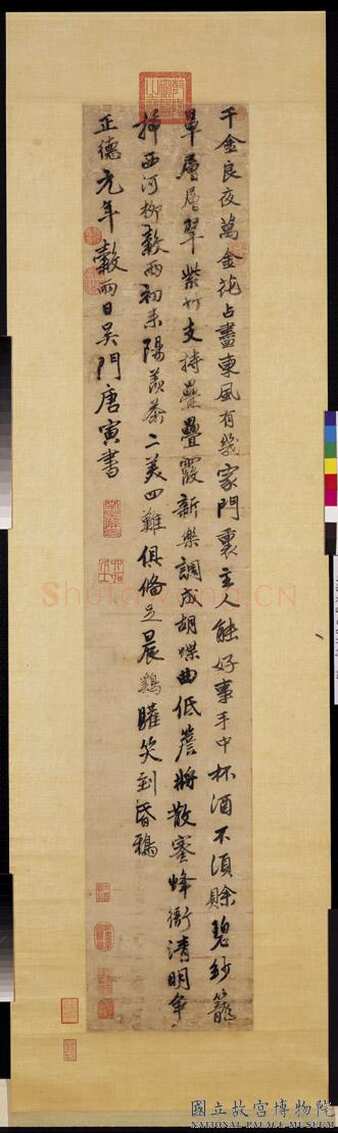 千金良夜萬金花占盡東風有幾家門裏主人能好事手中杯酒不須賒碧紗籠
罩層層翠紫竹支持疊疊霞新樂調成胡蝶曲低簷將散蜜蜂衙清明爭
插西河柳穀雨初來陽羨茶二美四難俱備足晨鷄矓笑到昏鴉
正德元年穀雨日吳門唐寅書
國立故宮博物院
NATIONAL PALACE MUSEUM